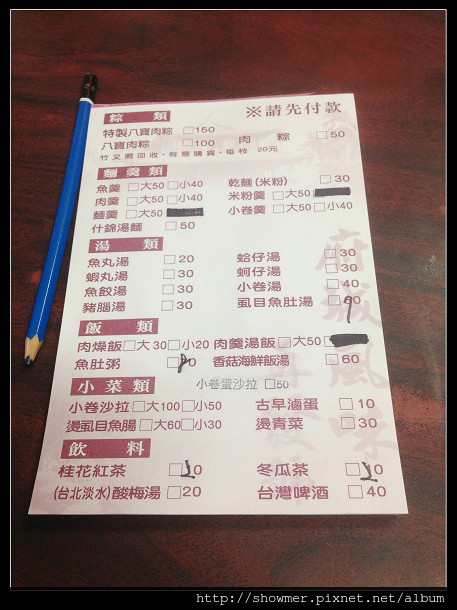 粽 類 ※請先付款
特製八寶肉粽 □150
八寶肉粽 □100 肉 粽 □50
竹叉需回收,有意購買,每枝 20元
麵羹類
魚羹 □大50□小40 乾麵(米粉) □30
肉羹 □大50□小40 米粉羹 □大50
麵羹 □大50 小卷羹 □大50□小40
什錦湯麵 □50
湯 類
魚丸湯 □20 蛤仔湯 □30
蝦丸湯 □30 蚵仔湯 □30
魚餃湯 □30 小卷湯 □40
豬腦湯 □30 虱目魚肚湯 □90
飯 類
肉燥飯□大30□小20 肉羹湯飯□大50
魚肚粥 香菇海鮮飯湯 □60
小菜類 小卷蛋沙拉 □50
小卷沙拉 □大100□小50 古早滷蛋 □10
燙虱目魚腸 □大60□小30 燙青菜 □30
飲 料
桂花紅茶 □10 冬瓜茶 □10
(台北淡水)酸梅湯 □20 台灣啤酒 □40
府城風味
http://showmer.pixnet.net/album